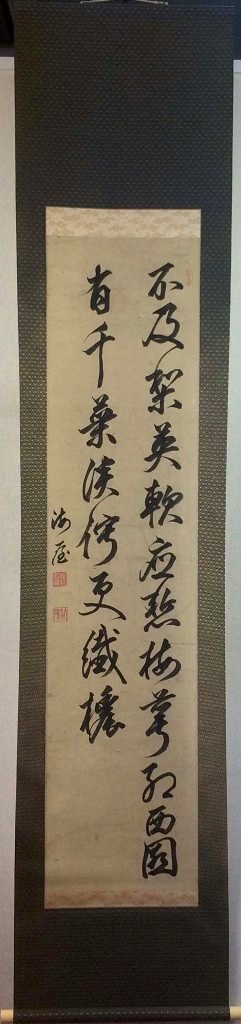 不及梨英軟應慙梅萼紅西園
有千葉淡佇更纖穠
海屋